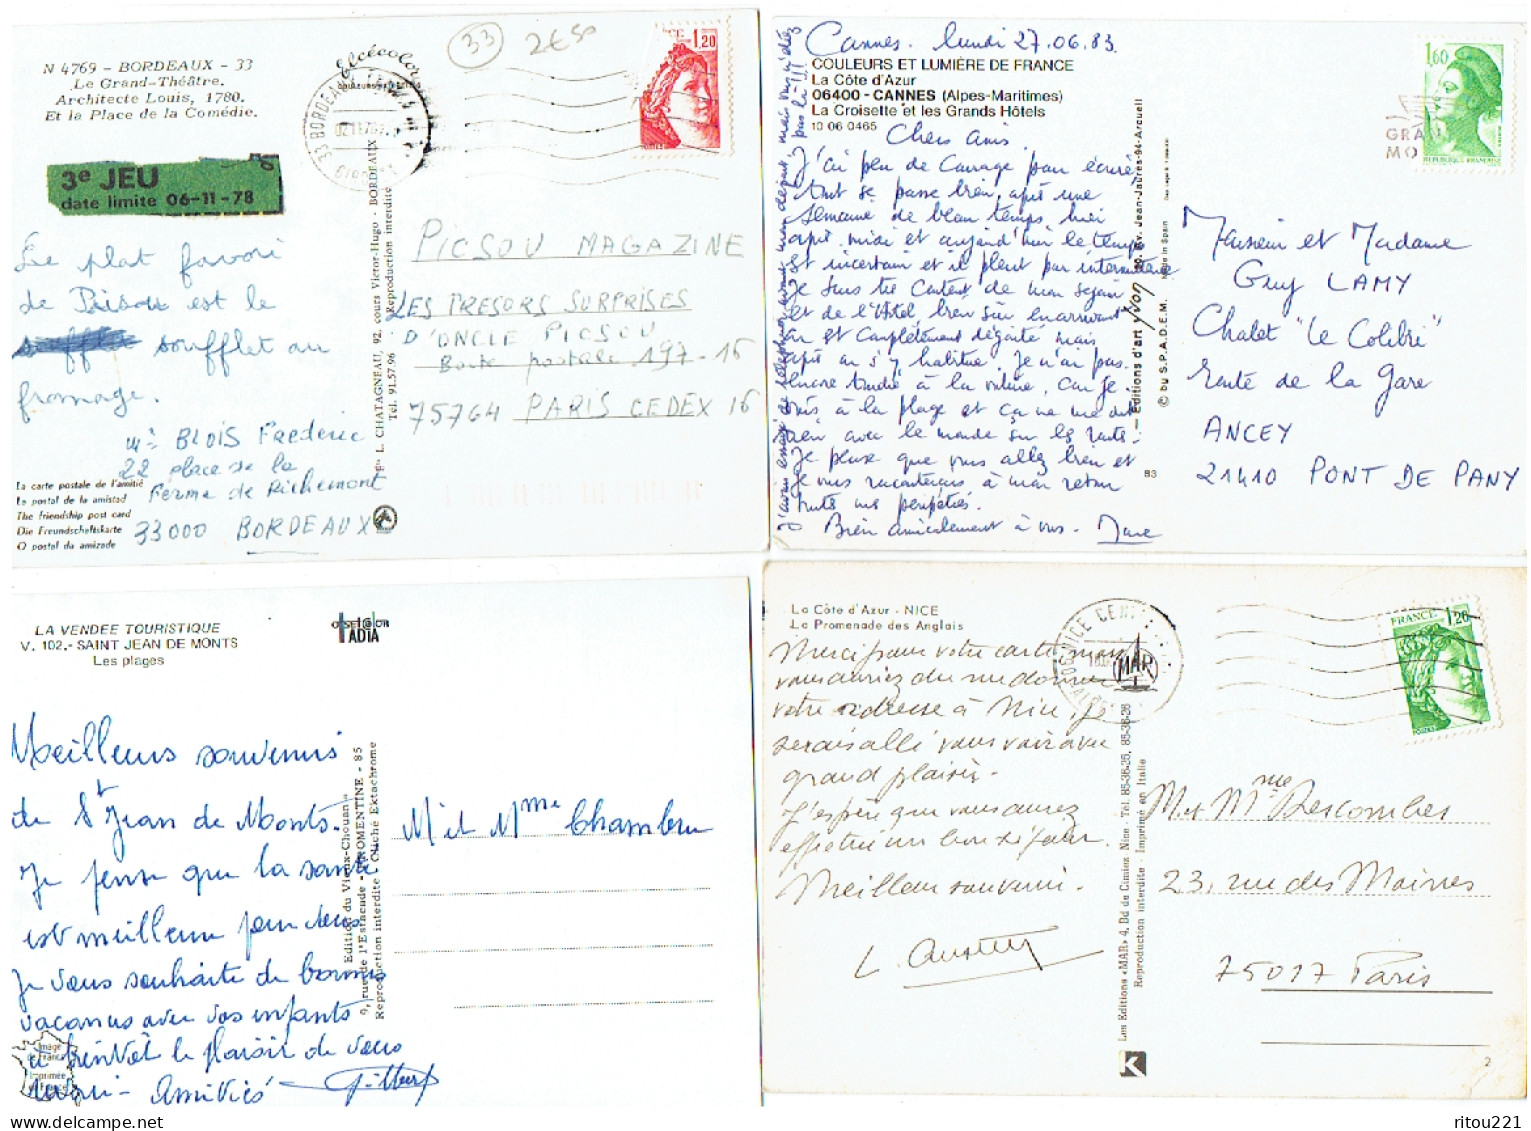 N 4769 - BORDEAUX - 33
Le Grand-Théâtre.
Architecte Louis, 1780.
Et la Place de la Comédie.
Elcécolor
33
2€50
1,20
3e JEU
date limite 06-11-78
Le plat favori
de Picsou est le
soufflet au
fromage.
Mr BLOIS Frédéric
22 place de la
Ferme de Richemont
33000 BORDEAUX
La carte postale de l'amitié
La postal de la amistad
The friendship post card
Die Freundschaftskarte
O postal da amizade
L. CHATAGNEAU, 92, cours Victor-Hugo - BORDEAUX
Tél. 91.57.96 Reproduction interdite
PICSOU MAGAZINE
LES TRESORS SURPRISES
D'ONCLE PICSOU
Boite postale 197-16
75764 PARIS CEDEX 16
Cannes. lundi 27.06.83.
COULEURS ET LUMIÈRE DE FRANCE
La Côte d'Azur
06400 - CANNES (Alpes-Maritimes)
La Croisette et les Grands Hôtels
10 06 0465
Chers amis.
J'ai peu de courage pour écrire
tout se passe bien, après une
semaine de beau temps, hier
après midi et aujourd'hui le temps
est incertain et il pleut par intermittence
Je suis très content de mon séjour
et de l'Hôtel bien sûr en arrivant
on est complètement dégouté mais
après on s'y habitue. Je n'ai pas
encore touché à la voiture, car je
vais à la plage et ça ne me dit
rien avec le monde sur les routes.
Je pense que vous allez bien et
je vous raconterais à mon retour
toutes mes péripéties.
Bien amicalement à vous. Marc
J'avais essayé de téléphoner avant mon départ mais vous n'étiez
pas là !!!
Editions d'art YVON, 30, Av. Jean-Jaurès-94-Arcueil
© by S.P.A.D.E.M. Made in Spain
83
1,60
REPUBLIQUE FRANÇAISE
GRA
MO
Monsieur et Madame
Guy LAMY
Chalet "Le Colibri"
route de la Gare
ANCEY
21410 PONT DE PANY
LA VENDEE TOURISTIQUE
V. 102.- SAINT JEAN DE MONTS
Les plages
ADIA
Meilleurs souvenirs
de St Jean de Monts.
Je pense que la santé
est meilleure pour vous
Je vous souhaite de bonnes
vacances avec vos enfants
à bientôt le plaisir de vous
Amitiés Gilbert
Image de France
Imprimée en France
Edition du Vieux-Chouan
9, rue de l'Estacade - FROMENTINE - 85
Reproduction interdite - Cliché Ektachrome
M et Mme Chambon
La Côte d'Azur - NICE
La Promenade des Anglais
MAR
Merci pour votre carte mais
vous auriez du me donner
votre adresse à Nice, je
serais allé vous voir avec
grand plaisir.
J'espère que vous aurez
effectué un bon séjour.
Meilleur souvenir.
Les Editions «MAR» 4, Bd de Cimiez Nice - Tél. 85-36-25, 85-38-26
Reproduction interdite - Imprimé en Italie
FRANCE 1,20
M. et Mme Descombes
23, rue des Moines
75017 Paris
K
2
ritou221